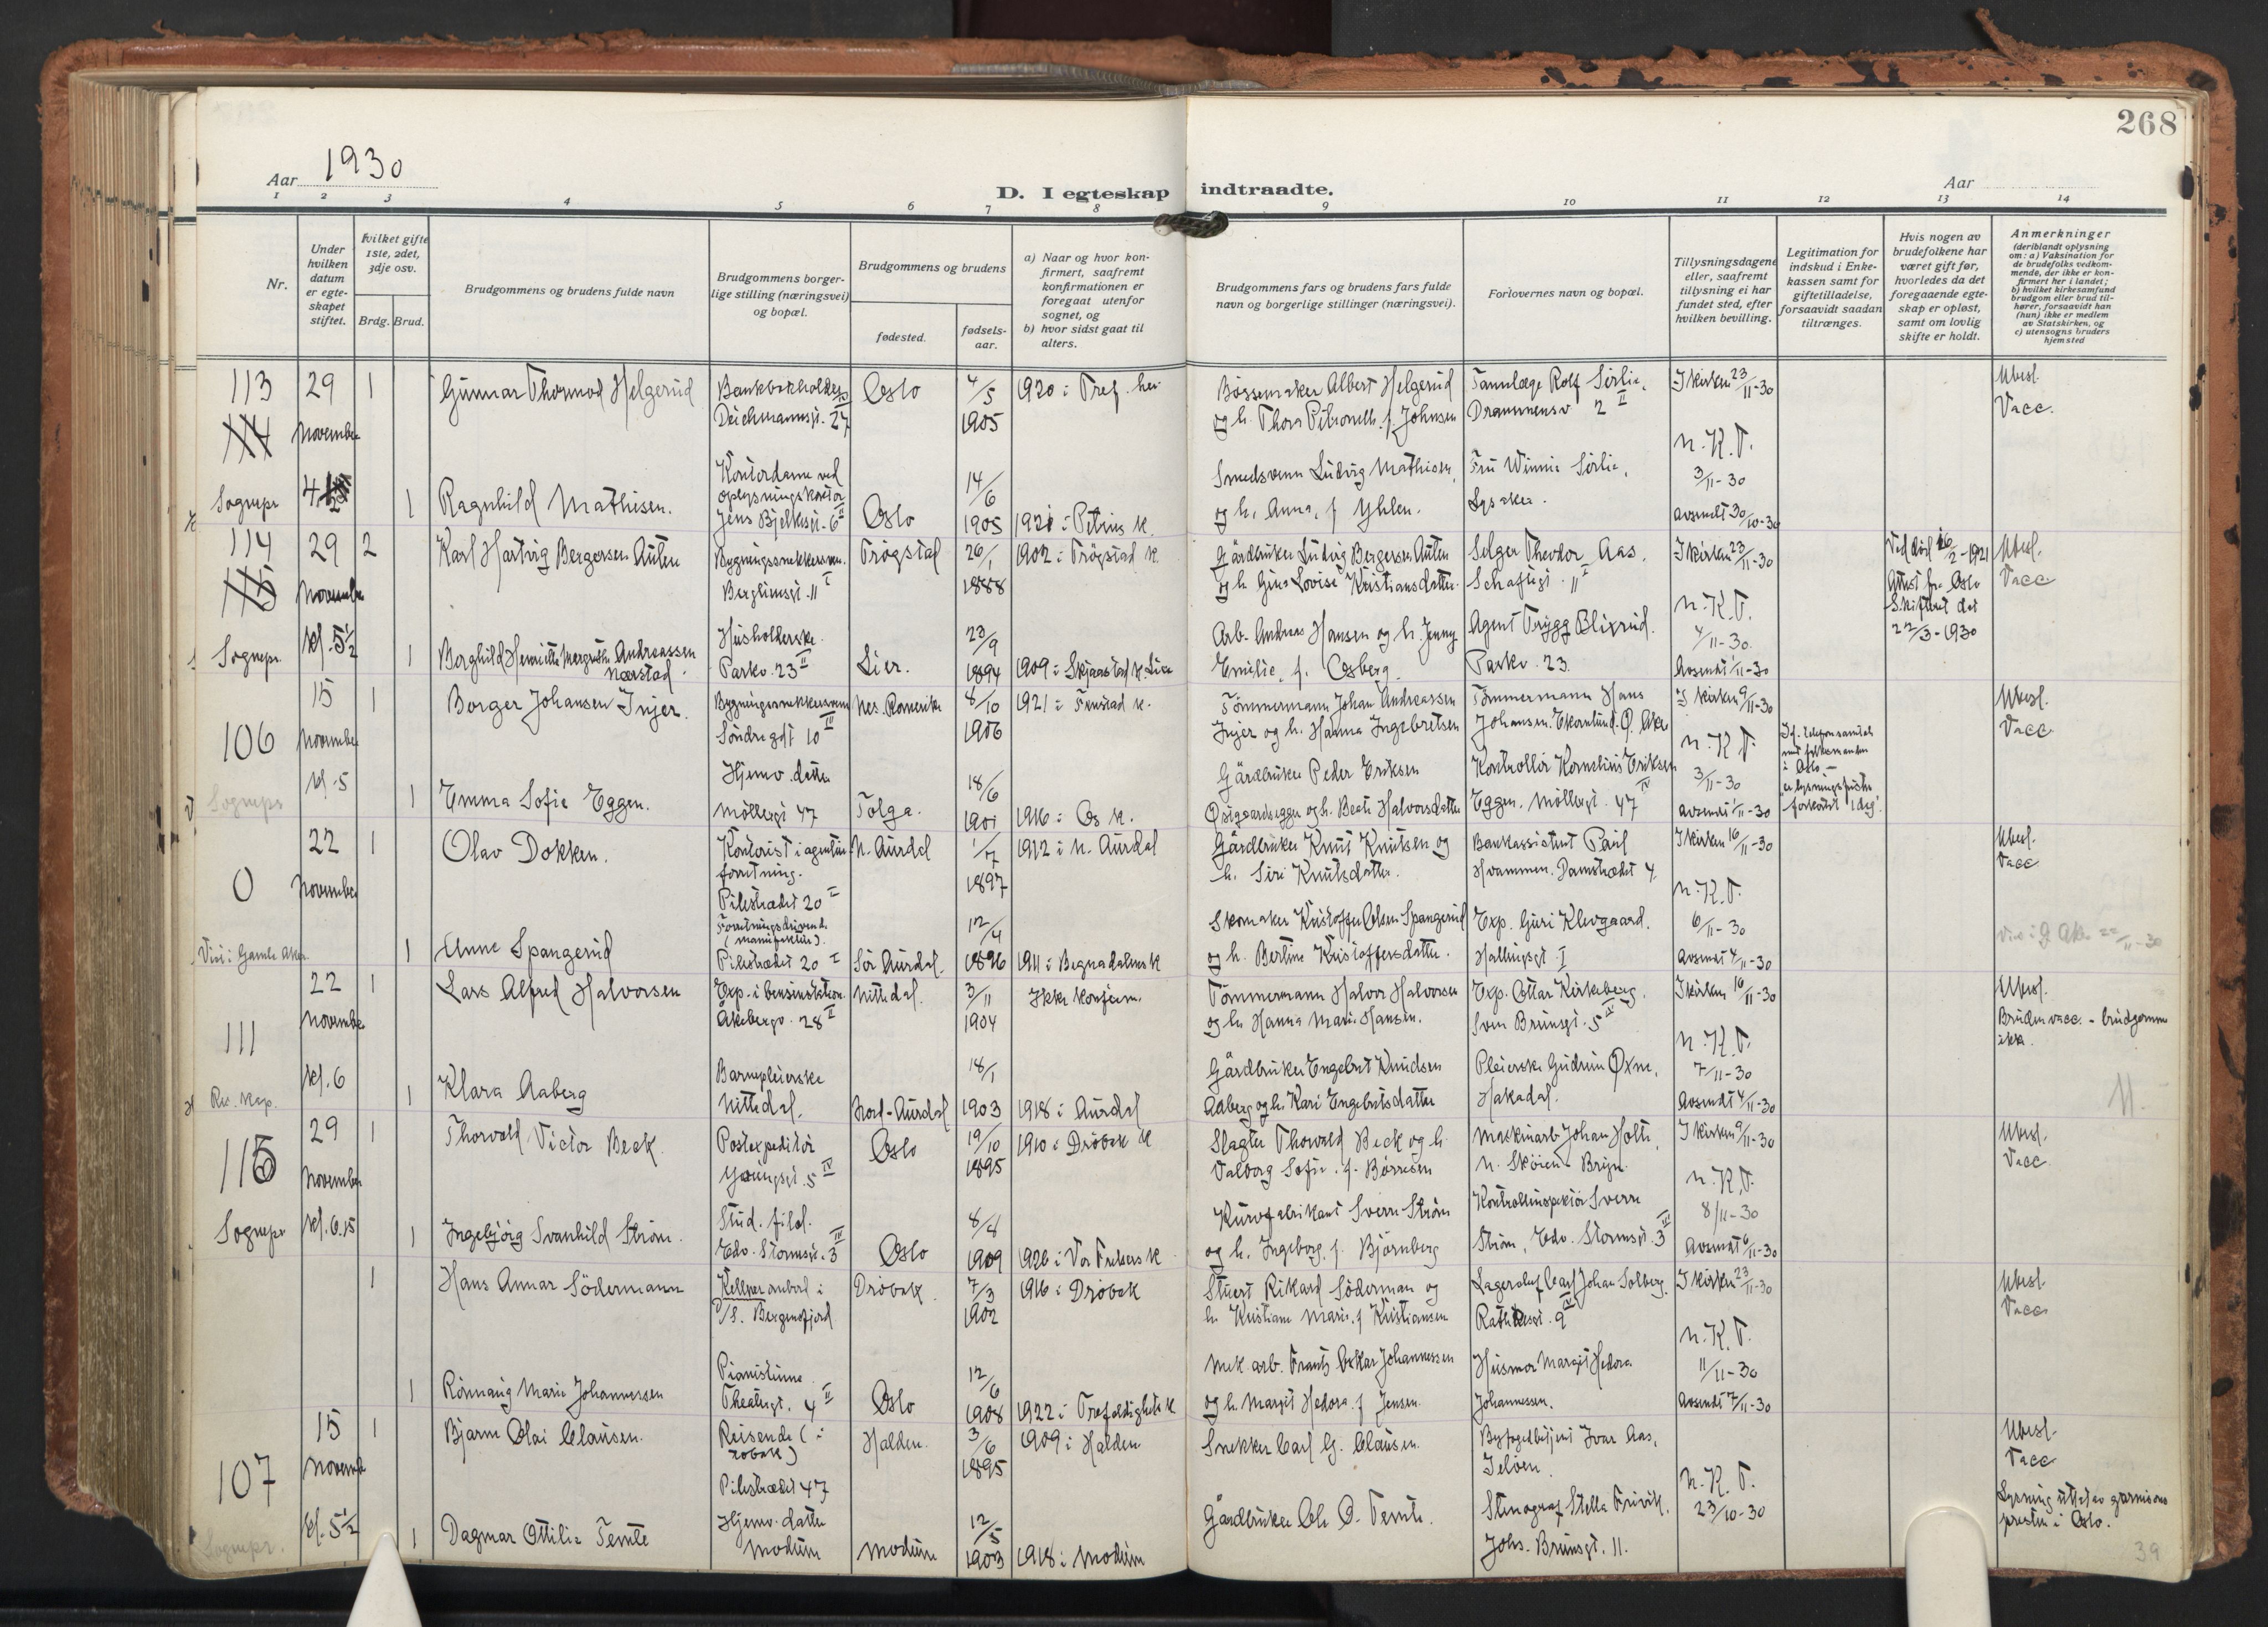 268
Aar 1930
D. I egteskap indtraadte.
Aar
1 2 3 4 5 6 7 8 9 10 11 12 13 14
Nr.
Under hvilken datum er egteskapet stiftet.
hvilket gifte 1ste, 2det, 3dje osv.
Brdg. Brud.
Brudgommens og brudens fulde navn
Brudgommens borgerlige stilling (næringsvei) og bopæl.
Brudgommens og brudens
fødested.
fødselsaar.
a) Naar og hvor konfirmert, saafremt konfirmationen er foregaat utenfor sognet, og
b) hvor sidst gaat til alters.
Brudgommens fars og brudens fars fulde navn og borgerlige stillinger (næringsvei).
Forlovernes navn og bopæl.
Tillysningsdagene eller, saafremt tillysning ei har fundet sted, efter hvilken bevilling.
Legitimation for indskud i Enkekassen samt for giftetilladelse, forsaavidt saadan tiltrænges.
Hvis nogen av brudefolkene har været gift før, hvorledes da det foregaaende egteskap er opløst, samt om lovlig skifte er holdt.
Anmerkninger
(deriblandt oplysning om: a) Vaksination for de brudefolks vedkommende, der ikke er konfirmert her i landet;
b) hvilket kirkesamfund brudgom eller brud tilhører, forsaavidt han (hun) ikke er medlem av Statskirken, og
c) utensogns bruders hjemsted
113 29 November 1 Gunnar Thormod Helgerud
Bankbokholder Deichmannsgt. 27 Oslo 4/5 1905 1920 i Tref. her
Bøssemaker Albert Helgerud og h. Thora Petronelle f. Johnsen
Tannlæge Rolf Sørlie, Drammensv. 2 II
I kirken 23/11-30 Ubesl. Vacc.
Sognepr 1 Ragnhild Mathisen.
Kontordame ved oplysningskontor Jens Bjelkesgt. 6 II Oslo 14/6 1905 1921 i Petrus k.
Smedsvenn Ludvig Mathisen, og h. Anna, f. Yhlen.
Fru Winnie Sørlie, Lysaker.
N.K.T. 3/11-30 Avsendt 30/10-30
114 29 November 2 Karl Hartvig Bergersen Auten
Bygningssnekkersven. Bergliensgt. 11 I Trögstad 26/1 1888 1902 i Trögstad k.
Gårdbruker Ludvig Bergersen Auten og h. Gina Lovise Kristiansdatter
Selger Theodor Aas. Schaftsgt. 11 I
I kirken 23/11-30
Ved död 26/2-1921 Attest fra Oslo Skifteret dat 22/3-1930
Ubesl. Vacc
Sognepr. kl. 5 1/2 1 Borghild Henriette Margrethe Andreassen Nærstad
Husholderske. Parkv. 23 II Lier. 23/9 1894 1909 i Skjaastad k. Lier
Arb. Andreas Hansen og h. Jenny Emilie, f. Osberg.
Agent Trygg Blixrud. Parkv. 23.
N.K.T. 4/11-30. Avsendt 1/11-30
106 15 November 1 Borger Johansen Injer.
Bygningssnekkersvenn Söndregt 10 III Nes. Romerike 8/10 1906 1921 i Fenstad k.
Tømmermann Johan Andreassen Injer og h. Hanna Ingebretsen
Tømmermann Hans Johansen. Ekornlund. Ø. Aker
I kirken 9/11-30 Ubesl. Vacc
Sognepr kl. 5 1 Emma Sofie Eggen.
Hjemv. datter Möllergt 47 Tolga. 18/6 1901 1916 i Os k.
Gårdbruker Peder Eriksen Östgaardseggen og h. Beate Halvorsdatter
Kontrollör Kornelius Eriksen Eggen. Möllergt. 47 IV
N.K.T. 3/11-30 Avsendt 1/11-30
If. telefonsamtale med fylkesmannen i Oslo – er lysningsfristen forkortet 1 dag.
0 22 November 1 Olav Dokken.
Kontorist i agenturforretning. Pilestrædet 20 I N. Aurdal 1/7 1897 1912 i N. Aurdal
Gårdbruker Knut Knutsen og h. Siri Knutsdatter.
Bankassistent Paul Hvammen. Damstrædet 4.
I kirken 16/11-30 Ubesl. Vacc
Viet i Gamle Aker 1 Anne Spangerud
Forretningsdrivende (manufaktur). Pilestrædet 20 I Sör Aurdal. 12/4 1896 1911 i Begnadalens k
Skomaker Kristoffer Olsen Spangerud og h. Bertine Kristoffersdatter.
Exp. Guri Klevgaard. Hallingsgt. I
N.K.T. 6/11-30 Avsendt 4/11-30
Viet i G. Aker 22/11-30
111 22 November 1 Lars Alfred Halvorsen
Exp. i bensinstation. Åkebergv. 28 II Nittedal. 3/11 1904 Ikke konfirm.
Tømmermann Halvor Halvorsen og h. Hanna Marie Hansen.
Exp. Ottar Kirkeberg. Sven Brunsgt. 5 IV
I kirken 16/11-30 Ubesl. Bruden vacc. - brudgommen ikke.
Res. kap. kl. 6 1 Klara Aaberg
Barnepleierske Nittedal. Nord-Aurdal 18/1 1903 1918 i Aurdal
Gårdbruker Engebret Knudsen Aaberg og h. Kari Engebretsdatter
Pleierske Gudrun Øxne, Hakadal.
N.K.T. 7/11-30 Avsendt 4/11-30
115 29 November 1 Thorvald Victor Beck
Postexpeditör Youngsgt. 5 IV Oslo 19/10 1895 1910 i Dröbak k
Slagter Thorvald Beck og h. Valborg Sofie. f. Börresen
Maskinarb. Johan Holte, N. Skøien. Bryn.
I kirken 9/11-30 Ubesl. Vacc
Sognepr kl. 6.15 1 Ingebjörg Svanhild Ström.
Stud. filol. Edv. Stormsgt. 3 III Oslo 8/8 1909 1926 i Vor Frelsers k
Kurvfabrikant Sverre Ström og h. Ingeborg, f. Björnberg
Kontrollinspektör Sverre Ström, Edv. Stormsgt. 3 III
N.K.T. 8/11-30 Avsendt 6/11-30
1 Hans Annar Södermann
Kellner ombord i D/S. Bergensfjord Dröbak. 7/3 1902 1916 i Dröbak
Stuert Rikard Söderman og h. Kristiane Marie. f. Kristiansen
Lagerchef Carl Johan Solberg. Rathkesgt. 9 IV
I kirken 23/11-30 Ubesl. Vacc
1 Rönnaug Marie Johannessen
Pianistinne. Theatergt. 4 II Oslo 12/6 1908 1922 i Trefoldighets k
Mek arb. Frantz Oskar Johannessen og h. Margit Hedora. f. Jensen.
Husmor Margit Hedora Johannessen.
N.K.T. 11/11-30 Avsendt 7/11-30
107 15 November 1 Bjarne Olai Clausen.
Reisende (i tobakk) Pilestrædet 47 Halden. 3/6 1895 1909 i Halden
Snekker Carl G. Clausen.
Byfogedbetjent Ivar Aas, Jelöen.
Ubesl. Vacc
Sognepr. kl. 5 1/2 1 Dagmar Ottilie Temte
Hjemv. datter Modum Modum 12/5 1903 1918 i Modum
Gårdbruker Ole O. Temte.
Stenograf Stella Fruvik. Johs. Brunsgt. 11.
N.K.T. 23/10-30
Lysning utstet av garnisonspresten i Oslo.
39